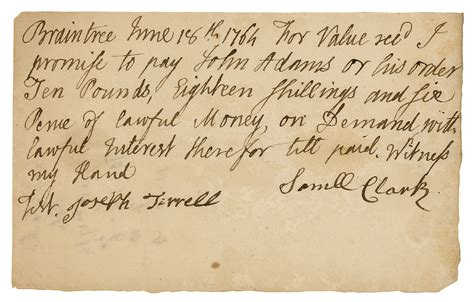 Braintree June 18th. 1764 For Value recd I
promise to pay John Adams or his order
Ten Pounds, Eighteen Shillings and six
Pence of lawful Money, on Demand with
lawful Interest there for till paid. Witness
my Hand
Test. Joseph Tirrell Samll Clark